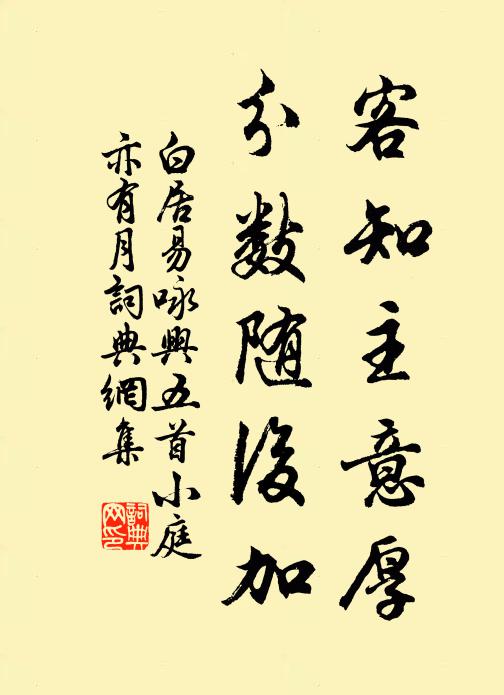 客知主意厚
分数随後加
白居易咏興五首小庭
亦有月詞典網集
詞典
网印